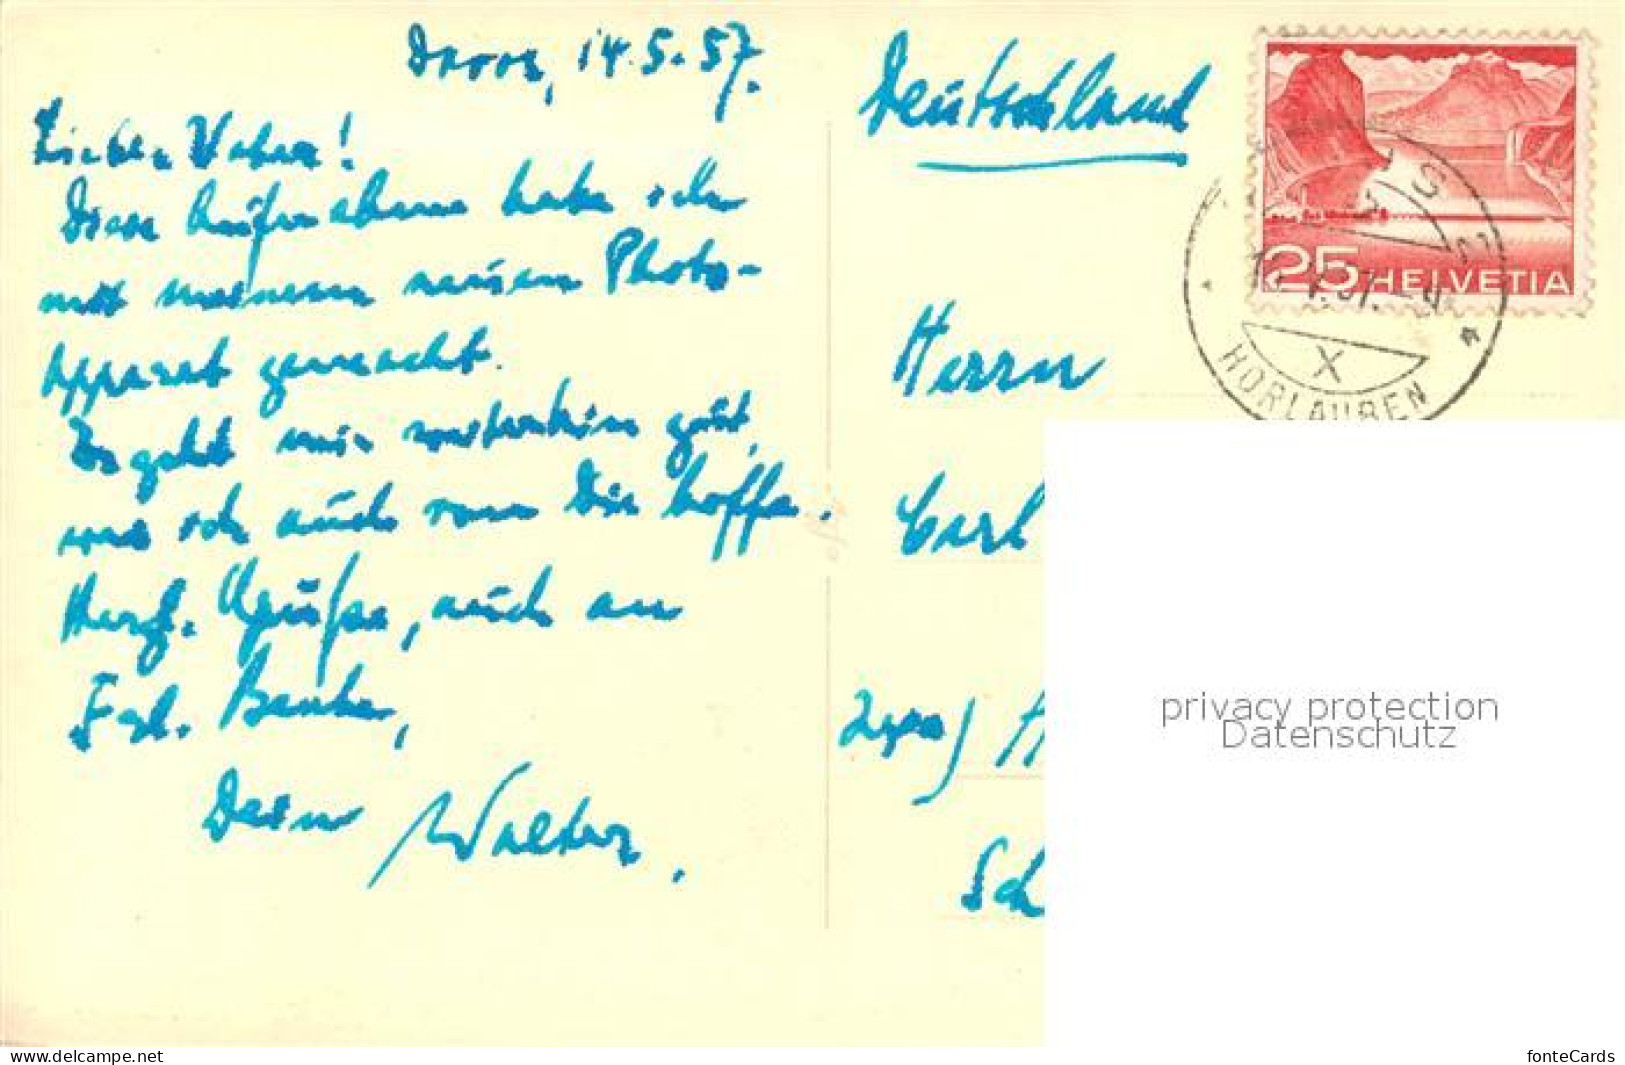 Davos, 14.5.57.
Lieber Vater!
Diese Aufnahmen habe ich
mit meinem neuen Photo-
Apparat gemacht.
Es geht mir weiterhin gut,
was ich auch von Dir hoffe.
Herzl. Grüsse, auch an
Frl.
Dein Walter.
Deutschland
Herrn
Carl
Sch
25 HELVETIA
X
HORLAUBEN
privacy protection
Datenschutz
www.delcampe.net
fonteCards